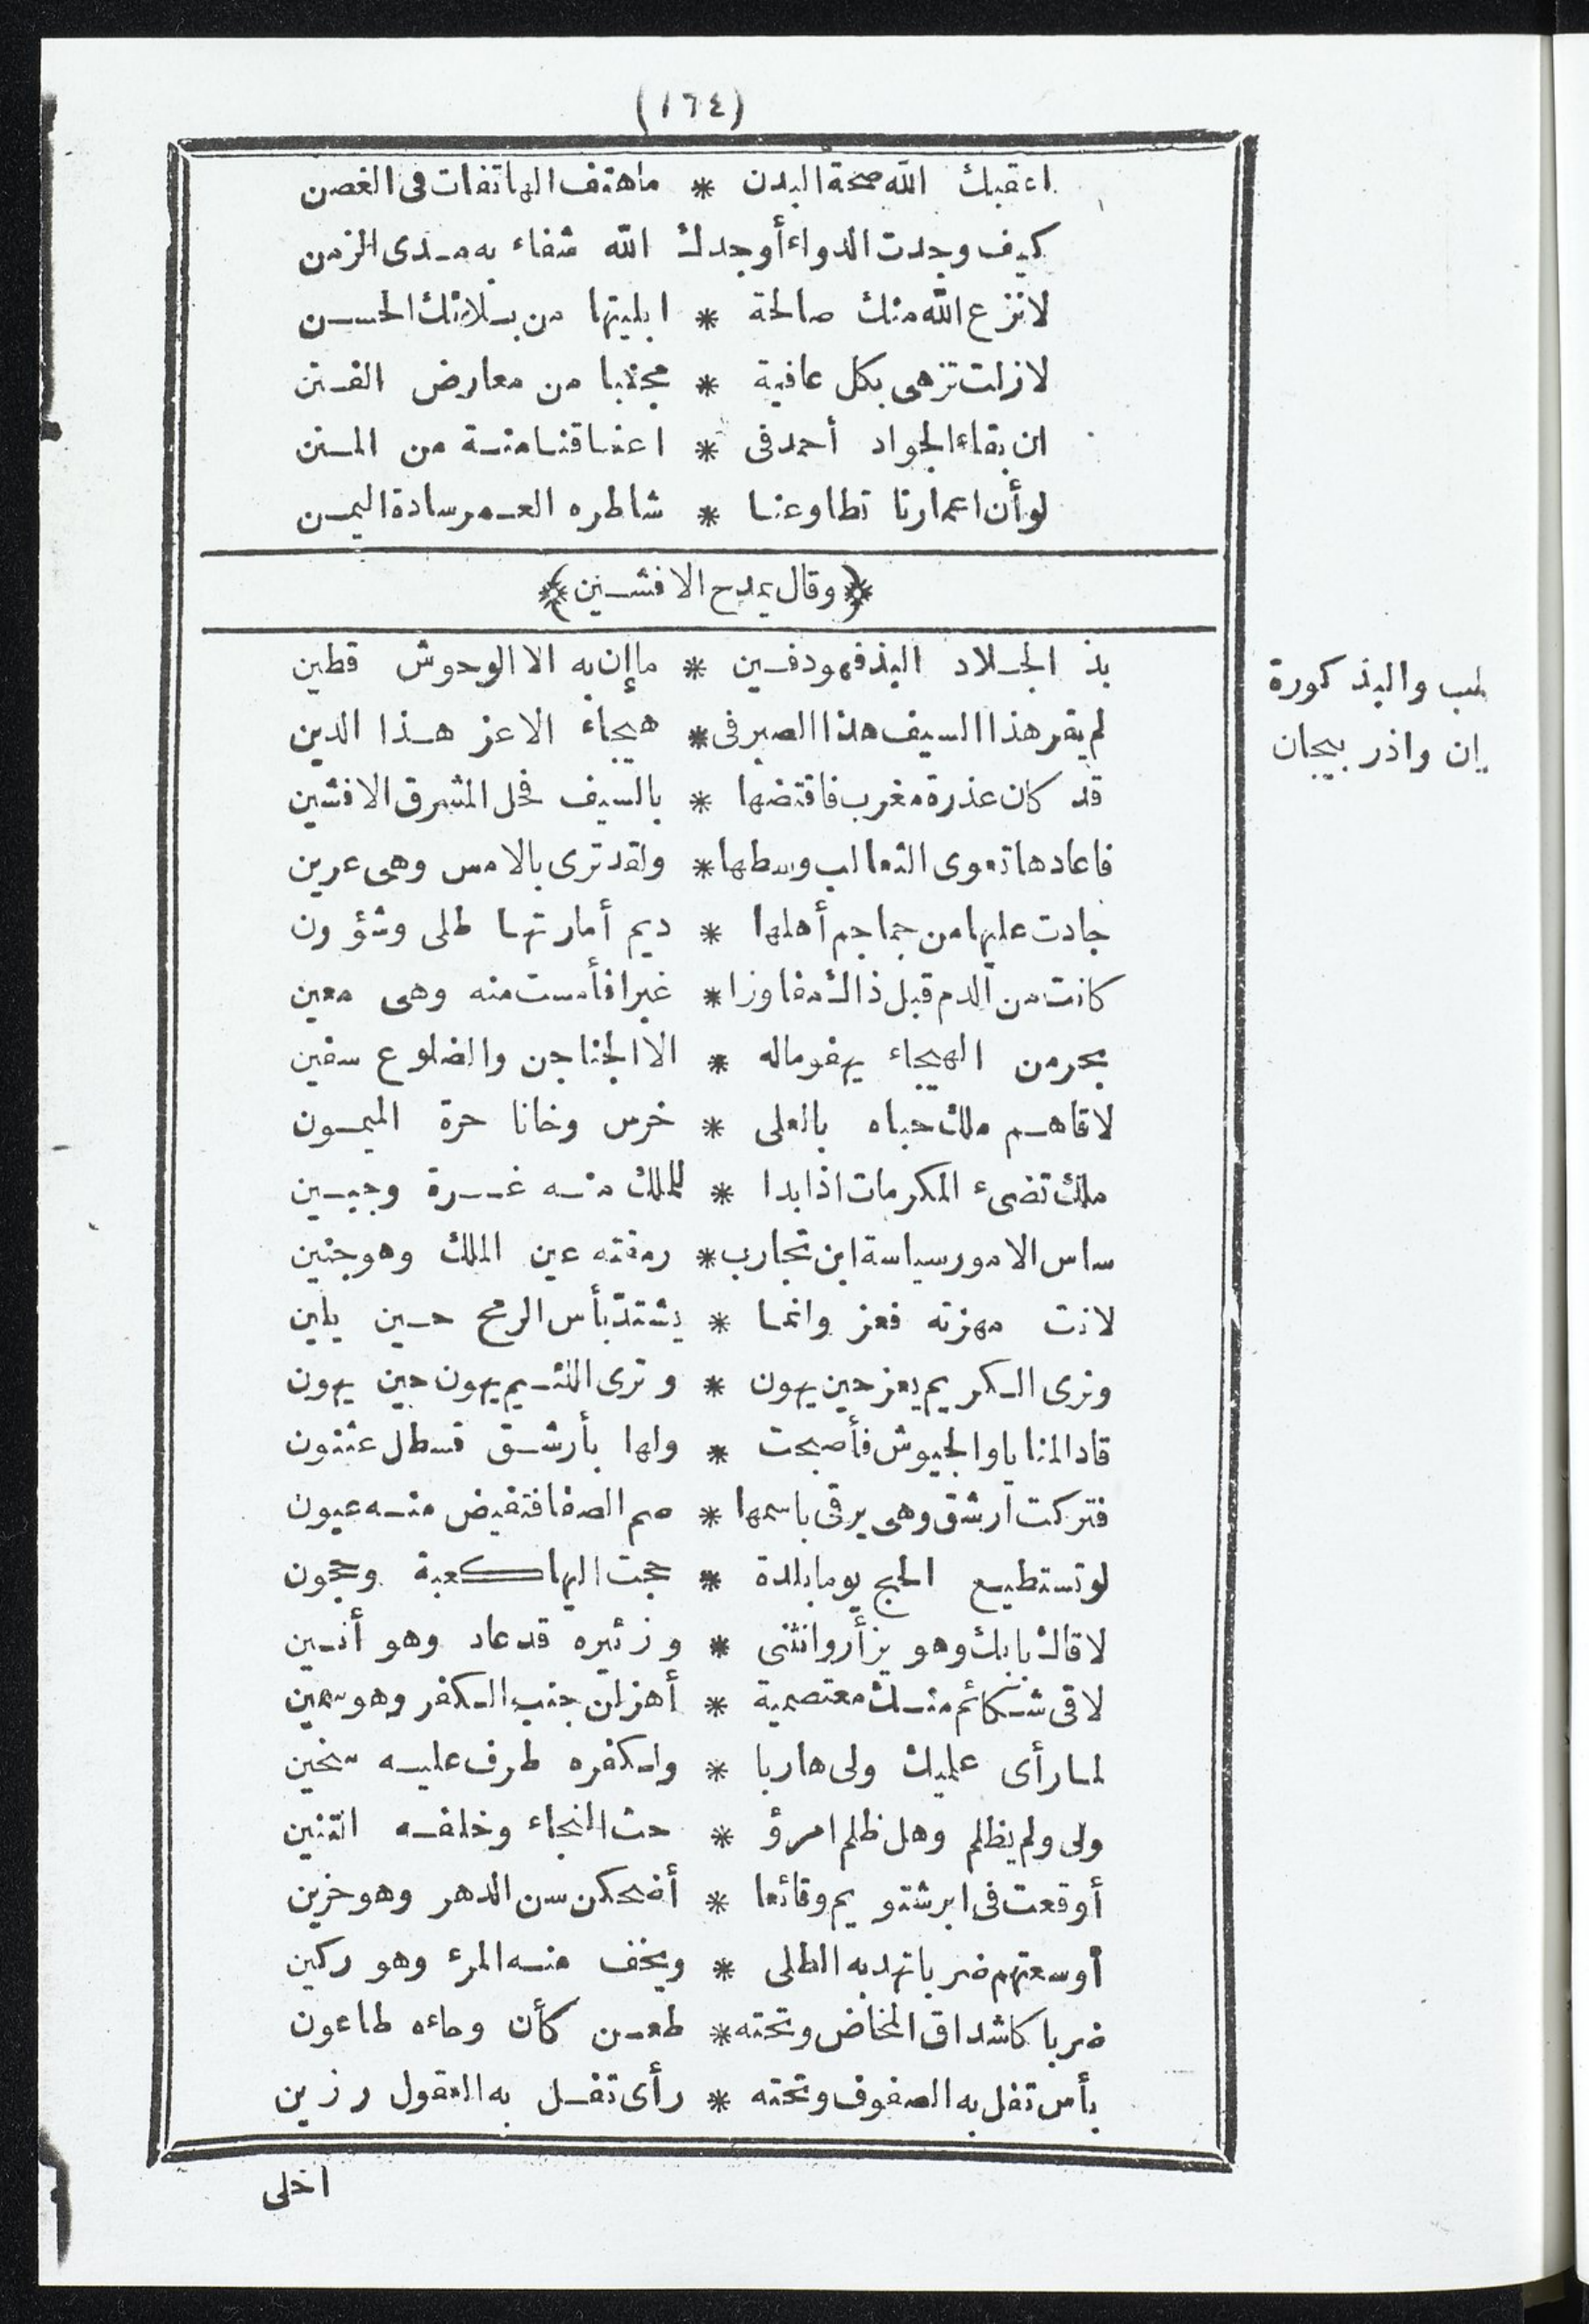 (١٦٤)
اعقبك الله صحة البدن * ما هتف الهاتفات فى الغصن
كيف وجدت الدواء أوجدك الله شفاء به مدى الزمن
لا نزع الله منك صالحة * ابليتها من بلائك الحسن
لازلت تزهى بكل عافية * مجتنبا من معارض الفتن
ان بقاء الجواد أحمد فى * اعناقنا منة من المنن
لو أن اعمارنا تطاوعنا * شاطره العمر سادة اليمن
﴿وقال يمدح الافشين﴾
بذ الجلاد البذ فهو دفين * ما إن به الا الوحوش قطين
لم يقر هذا السيف هذا الصبر فى * هيجاء الا عز هذا الدين
قد كان عذرة مغرب فاقتضها * بالسيف فحل المشرق الافشين
فاعادها تعوى الثعالب وسطها * ولقد ترى بالامس وهى عرين
جادت عليها من جماجم أهلها * ديم أمارتها طلى وشؤون
كانت من الدم قبل ذاك مفاوزا * غبرا فأمست منه وهى معين
بحر من الهيجاء يهفو ماله * الا الجناجن والضلوع سفين
لاقاهم ملك حباه بالعلى * خرس وخانا حرة الميمون
ملك تضىء المكرمات اذا بدا * للملك منه غرة وجبين
ساس الامور سياسة ابن تجارب * رمقته عين الملك وهو جنين
لانت مهزته فعز وانما * يشتد بأس الرمح حين يلين
وترى الكريم يعز حين يهون * وترى اللئيم يهون حين يهون
قاد المنايا والجيوش فأصبحت * ولها بأرشق قسطل عثنون
فتركت ارشق وهى يرقى باسمها * صم الصفا فتفيض منه عيون
لو تستطيع الحج يوما بلدة * حجت اليها كعبة وحجون
لاقاك بابك وهو يزأر وانثنى * وزئيره قد عاد وهو أنين
لاقى شكائم منك معتصمية * أهزلن جنب الكفر وهو سمين
لما رأى علميك ولى هاربا * ولكفره طرف عليه سخين
ولى ولم يظلم وهل ظلم امرؤ * حث النجاء وخلفه التنين
أوقعت فى ابرشتويم وقائعا * أضحكن سن الدهر وهو حزين
أوسعتهم ضربا تهد به الطلى * ويخف منه المرء وهو ركين
ضربا كاشداق المخاض وتحته * طعن كأن وحاءه طاعون
بأس تفل به الصفوف وتحته * رأى تفل به العقول رزين
اخلى
والبذ كورة
ان واذر بيجان